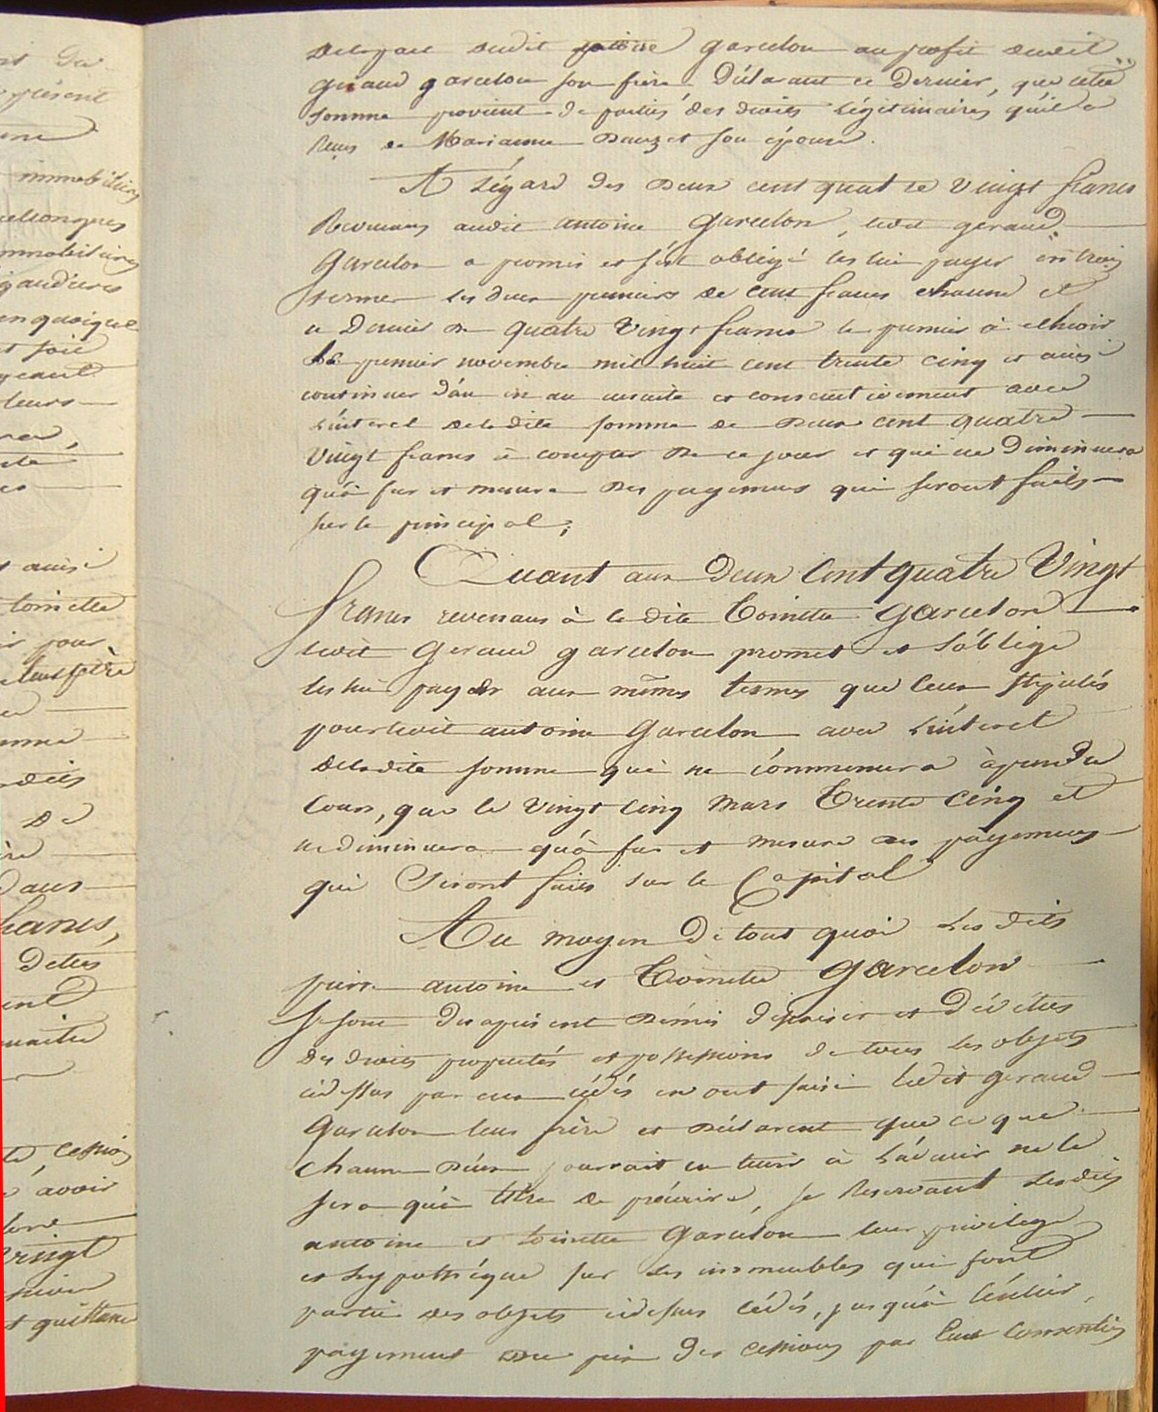 nt du
présent
une
immobiliers
quelconques
immobiliers
gaudieres
en quoique
et soie
leurs
ainsi
toinette
ir pour
leur père
de
dans
francs,
dettes
cession
avoir
vingt
et quittance
de la part dudit garcelon au profit dudit
geraud garcelon son frère. Déclarant ce Dernier, que cette
somme provient de partie des droits légitimaires qu'il a
reçus de Marianne Dauzet son épouse.
A l'égard des Deux cent quatre vingt francs
Revenans audit antoine garcelon, ledit geraud
garcelon a promis et s'est obligé les lui payer en trois
termes les deux premiers de cent francs chacun et
ce Dernier de quatre vingt francs le premier à échoir
le premier novembre mil huit cent trente cinq et ainsi
continuer d'an en an ensuite et consecutivement avec
l'interet de la dite somme de Deux cent quatre
vingt francs à compter de ce jour et qui ne Diminuera
qu'à fur et mesure des payemens qui seront faits
sur le principal;
Quant aux Deux Cent quatre Vingt
francs revenans à la dite Toinette garcelon
ledit Geraud garcelon promet et s'oblige
les lui payer aux mêmes termes que ceux stipulés
pour ledit antoine garcelon avec l'interet
de la dite somme qui ne commencera à prendre
Cours, que le vingt cinq Mars Trente Cinq et
ne diminuera qu'à fur et mesure des payemens
qui Seront faits sur le Capital
Au moyen de tout quoi Les dits
pierre antoine et Toinette garcelon
se sont dès à présent Démis désaisis et Dévêtus
des droits propriétés et possessions de tous les objets
cidessus par eux cédés en ont saisi ledit geraud
garcelon leur frère et Déclarent que ce que
chacun d'eux pourrait en tenir à l'avenir ne le
sera qu'à titre de précaire, se Reservant Lesdits
antoine et toinette Garcelon leur privilege
et hypothéque sur les immeubles qui font
partie des objets cidessus cédés, jusqu'à l'entier
payement du prix des cessions par Eux Consenties